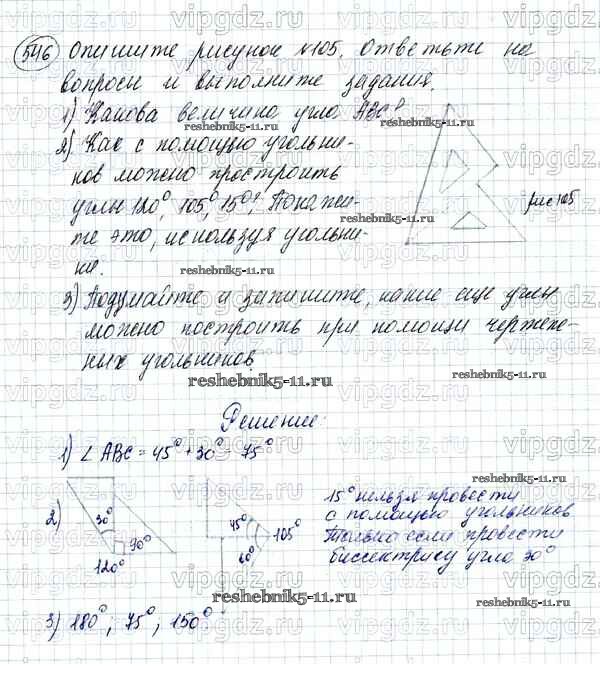 546 Опишите рисунок №105. Ответьте на
вопросы и выполните задания.
1) Какова величина угла ABC?
reshebnik5-11.ru
2) Как с помощью угольни-
ков можно простроить
углы 120°, 105°, 15°? Покажи-
рис 105
те это, используя угольни-
ки.
reshebnik5-11.ru
3) Подумайте и запишите, какие еще углы
можно построить при помощи чертеж-
ных угольников.
reshebnik5-11.ru
Решение:
1) ∠ ABC = 45° + 30° = 75°
reshebnik5-11.ru
2)
30°
90°
120°
45°
60°
105°
15° нельзя провести
с помощью угольников
Только если провести
биссектрису угла 30°
reshebnik5-11.ru
3) 180°; 75°; 150°
vipgdz.ru